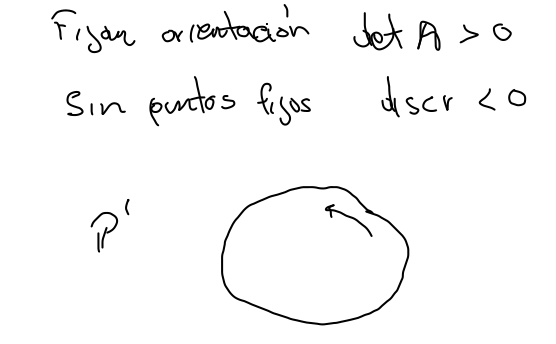 Fijan orientación det A > 0
Sin puntos fijos discr < 0
P¹